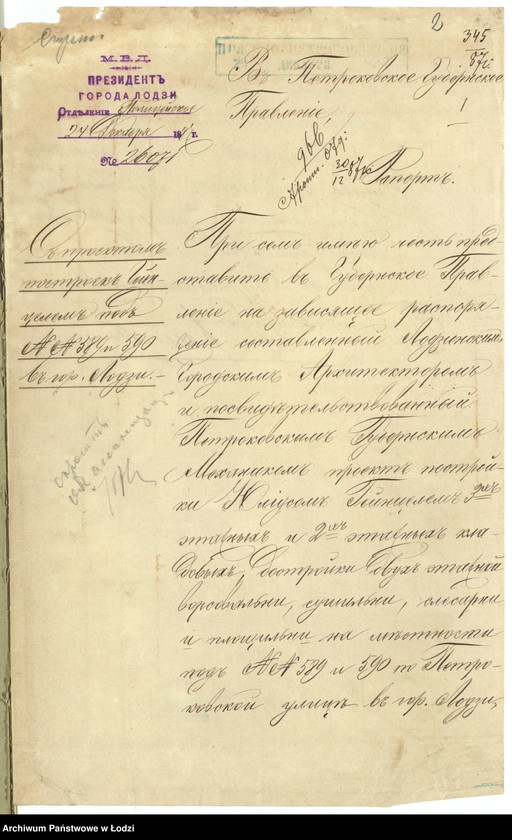 2
345
87 г.
М. В. Д.
ПРЕЗИДЕНТЪ
ГОРОДА ЛОДЗИ
Отдѣленіе Полицейское
24 Декабря 18 г.
№ 26071
Въ Петроковское Губернское
Правленіе,
966
30/12 87 г.
Рапортъ.
Съ проектомъ
построекъ Гейн-
целемъ подъ
№№ 589 и 590
въ гор. Лодзи.-
При семъ имѣю честь пред-
ставить въ Губернское Прав-
леніе на зависящее распоря-
женіе составленный Лодзинскимъ
Городскимъ Архитекторомъ
и посвидѣтельствованный
Петроковскимъ Губернскимъ
Механикомъ проектъ построй-
ки Юліусомъ Гейнцелемъ 3хъ
этажныхъ и 2хъ этажныхъ кла-
довыхъ, достройки двухъ этажной
ворсовальни, сушильни, слесарни
и площильни на мѣстности
подъ №№ 589 и 590 по Петро-
ковской улицѣ въ гор. Лодзи,
Archiwum Państwowe w Łodzi